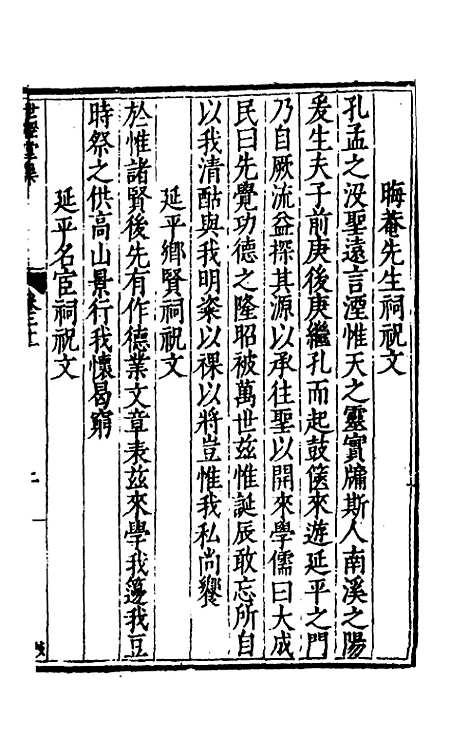 晦菴先生祠祝文
孔孟之沒聖遠言湮惟天之靈實牖斯人南溪之陽
爰生夫子前庚後庚繼孔而起鼓篋來遊延平之門
乃自厥流益探其源以承往聖以開來學儒曰大成
民曰先覺功德之隆昭被萬世茲惟誕辰敢忘所自
以我清酤與我明粢以祼以將豈惟我私尚饗
延平鄉賢祠祝文
於惟諸賢後先有作德業文章表茲來學我籩我豆
時祭之供高山景行我懷曷窮
延平名宦祠祝文
世經堂集
卷二十
二